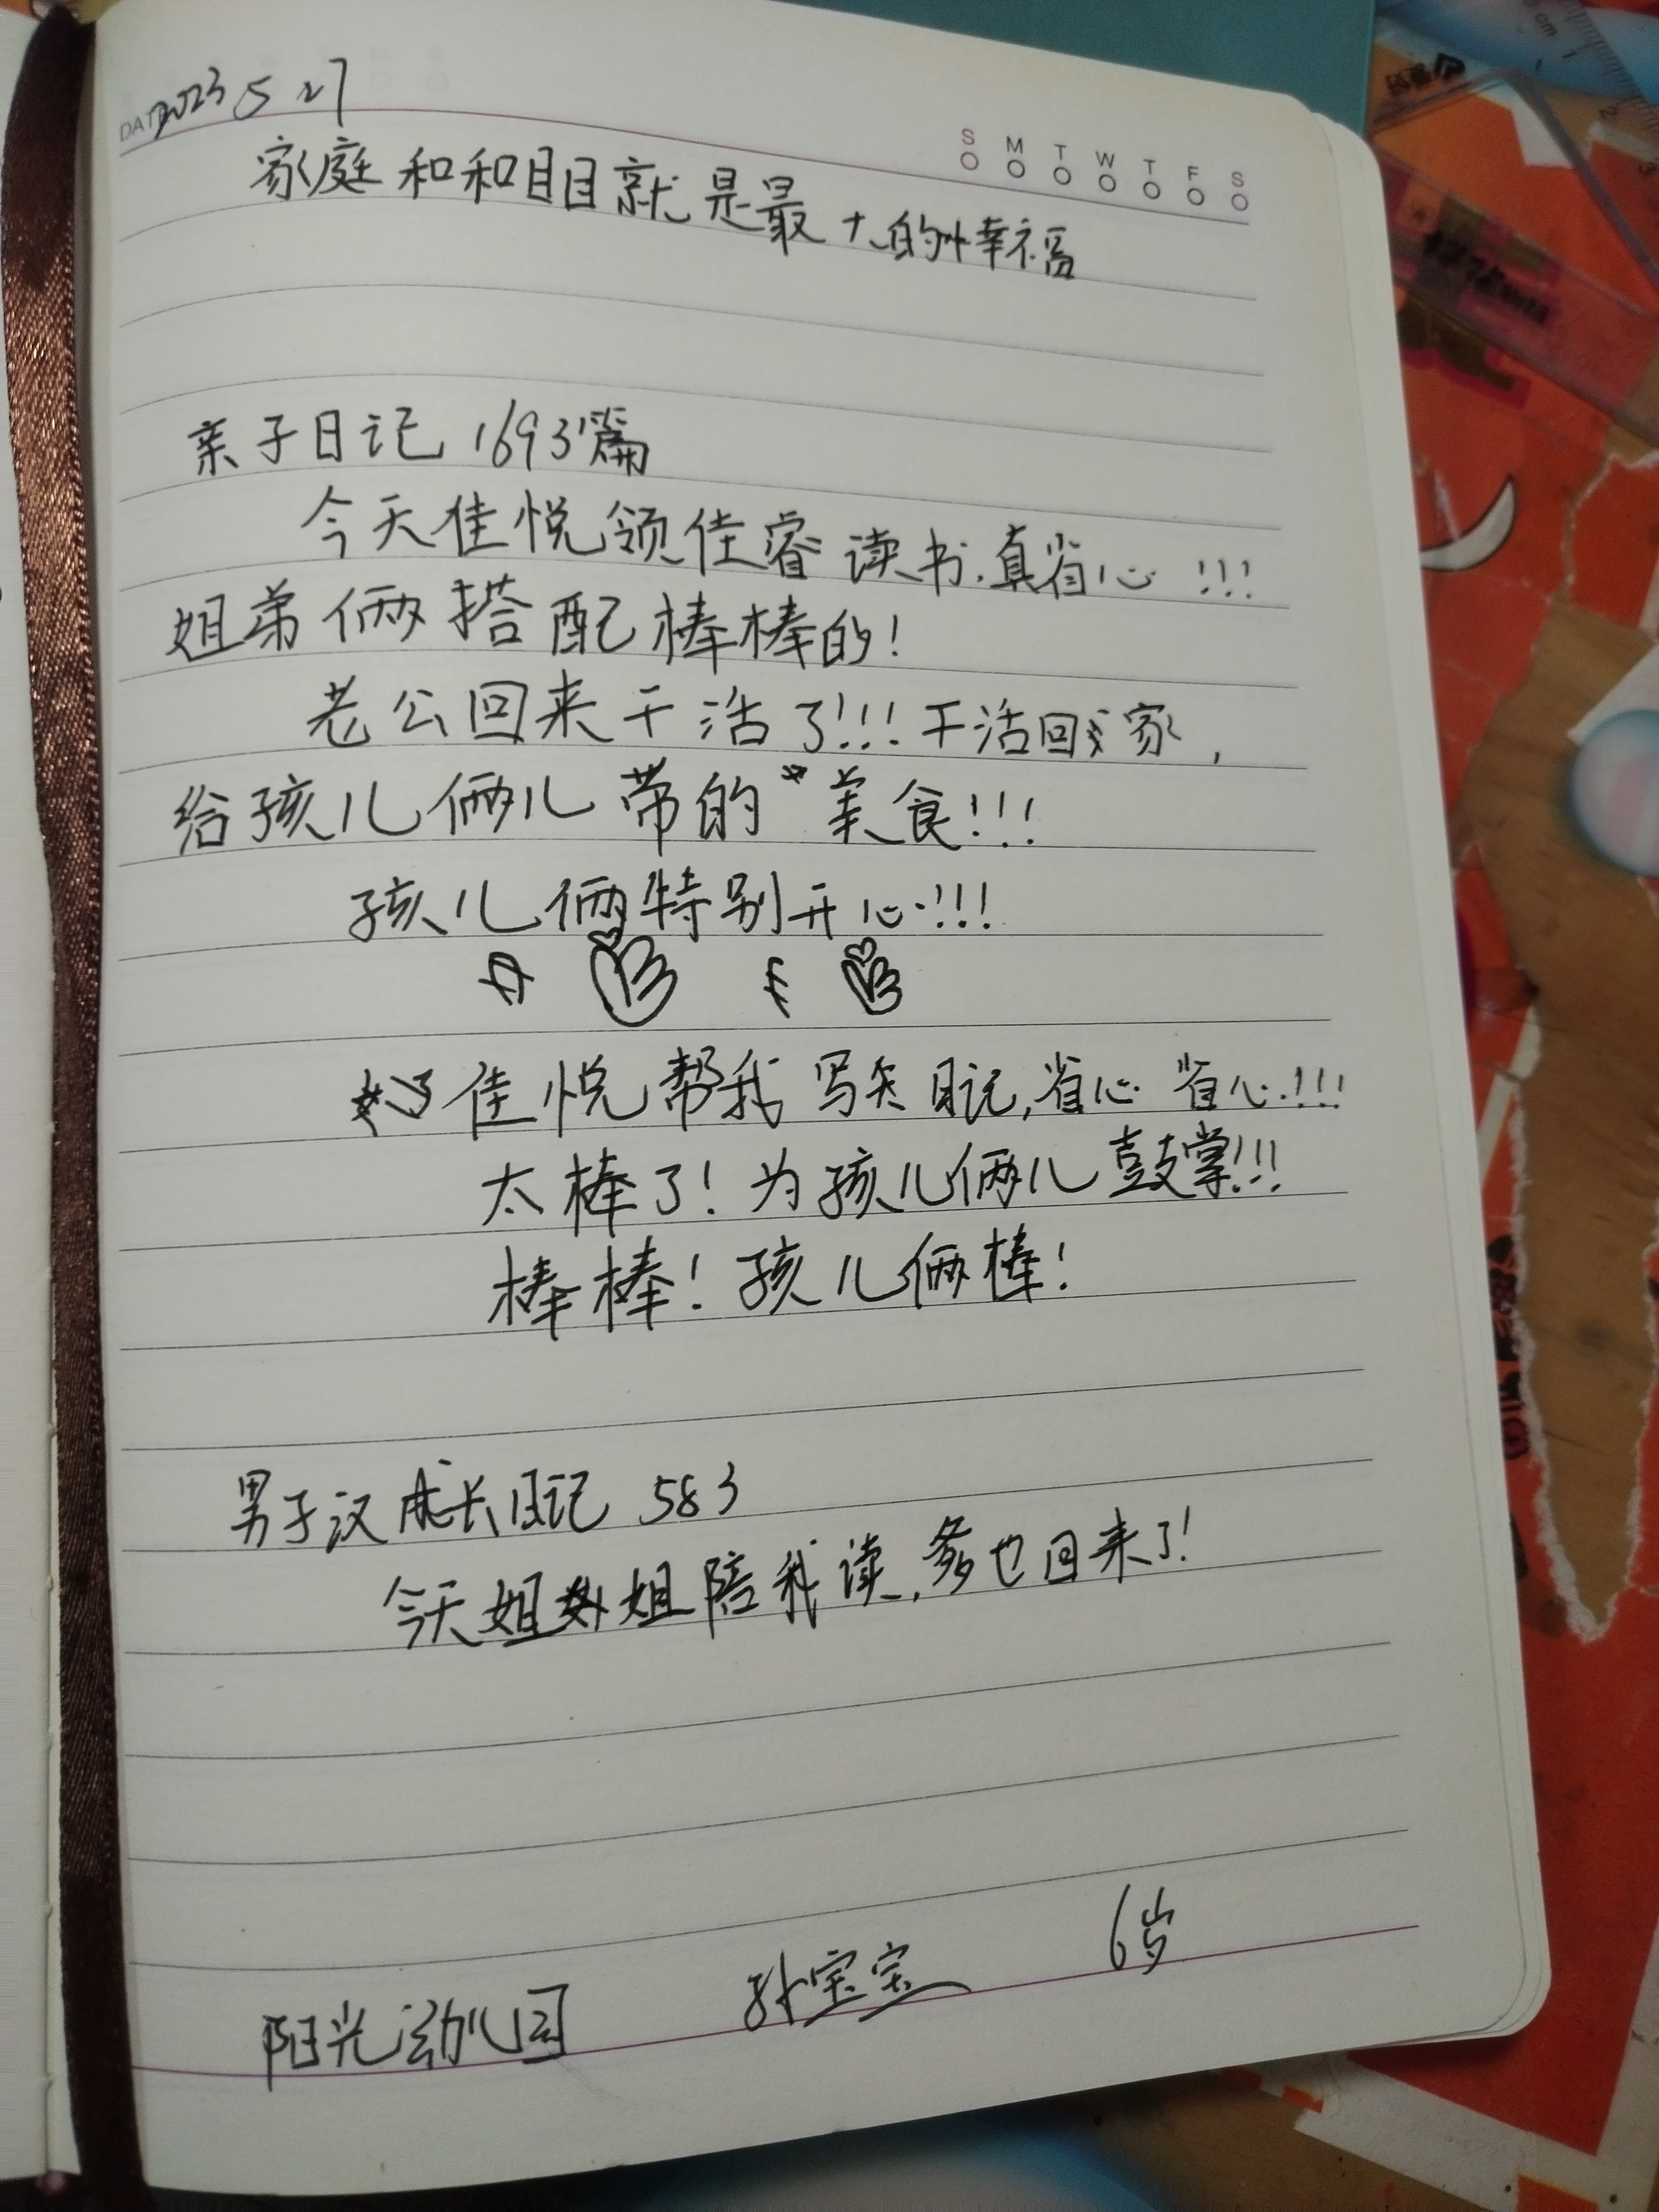 DATE 2023 5 27
S M T W T F S
家庭和和目目就是最大的幸福
亲子日记 1693篇
今天佳悦领佳睿读书.真省心!!!
姐弟俩搭配棒棒的!
老公回来干活了!!!干活回家,
给孩儿俩儿带的美食!!!
孩儿俩特别开心!!!
佳悦帮我写矢日记,省心省心!!!
太棒了!为孩儿俩儿鼓掌!!!
棒棒!孩儿俩棒!
男子汉成长日记 583
今天姐姐陪我读,爹也回来了!
阳光幼儿园 孙宝宝 6岁